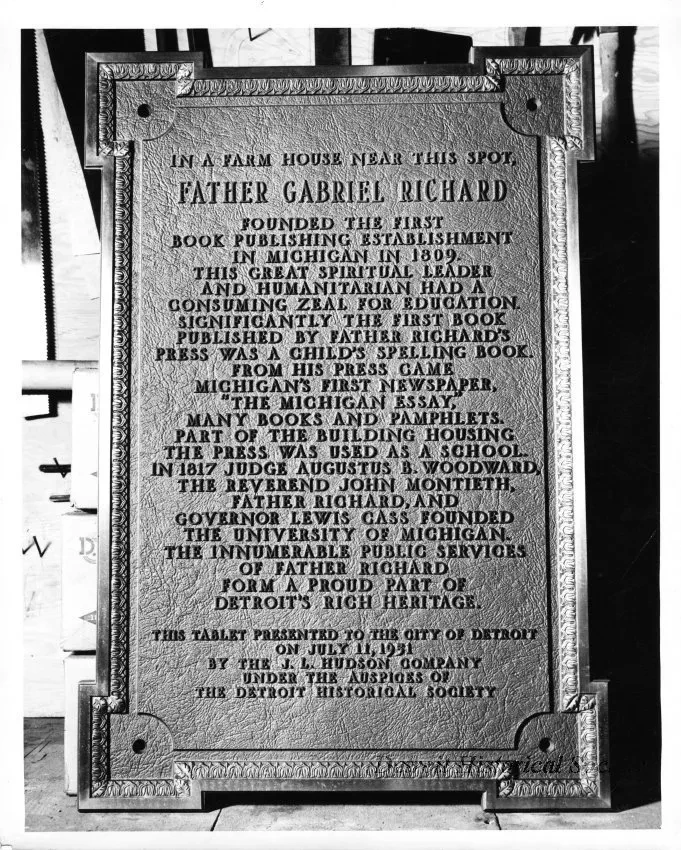 IN A FARM HOUSE NEAR THIS SPOT,
FATHER GABRIEL RICHARD
FOUNDED THE FIRST
BOOK PUBLISHING ESTABLISHMENT
IN MICHIGAN IN 1809.
THIS GREAT SPIRITUAL LEADER
AND HUMANITARIAN HAD A
CONSUMING ZEAL FOR EDUCATION.
SIGNIFICANTLY THE FIRST BOOK
PUBLISHED BY FATHER RICHARD'S
PRESS WAS A CHILD'S SPELLING BOOK.
FROM HIS PRESS CAME
MICHIGAN'S FIRST NEWSPAPER,
"THE MICHIGAN ESSAY,"
MANY BOOKS AND PAMPHLETS.
PART OF THE BUILDING HOUSING
THE PRESS WAS USED AS A SCHOOL.
IN 1817 JUDGE AUGUSTUS B. WOODWARD,
THE REVEREND JOHN MONTIETH,
FATHER RICHARD, AND
GOVERNOR LEWIS CASS FOUNDED
THE UNIVERSITY OF MICHIGAN.
THE INNUMERABLE PUBLIC SERVICES
OF FATHER RICHARD
FORM A PROUD PART OF
DETROIT'S RICH HERITAGE.
THIS TABLET PRESENTED TO THE CITY OF DETROIT
ON JULY 11, 1951
BY THE J. L. HUDSON COMPANY
UNDER THE AUSPICES OF
THE DETROIT HISTORICAL SOCIETY
Detroit Historical Society